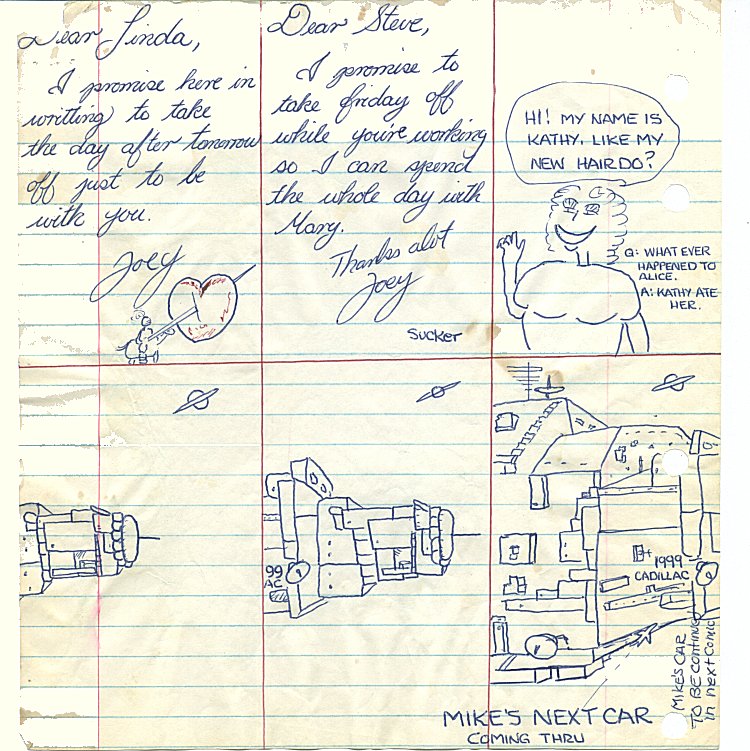 Dear Linda,
I promise here in
writting to take
the day after tomorrow
off just to be
with you.
Joey
Dear Steve,
I promise to
take friday off
while you're working
so I can spend
the whole day with
Mary.
Thanks alot
Joey
SUCKER
HI! MY NAME IS
KATHY. LIKE MY
NEW HAIRDO?
Q: WHAT EVER
HAPPENED TO
ALICE.
A: KATHY ATE
HER.
99
AC
1999
CADILLAC
MIKE'S CAR
TO BE CONTINUE
in next comic
MIKE'S NEXT CAR
COMING THRU